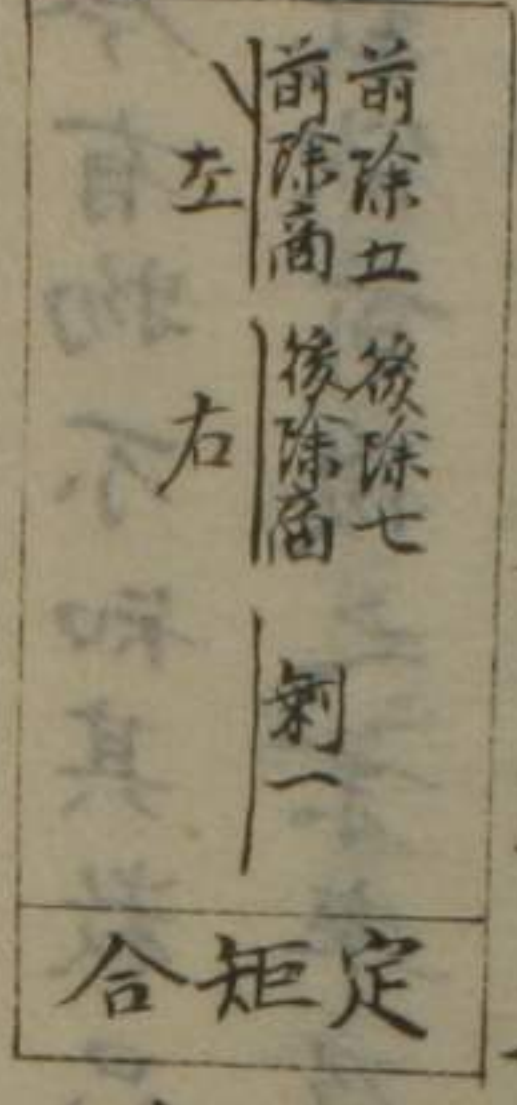 前除五 後除七
前除商 後除商 剰一
左 右
定矩合